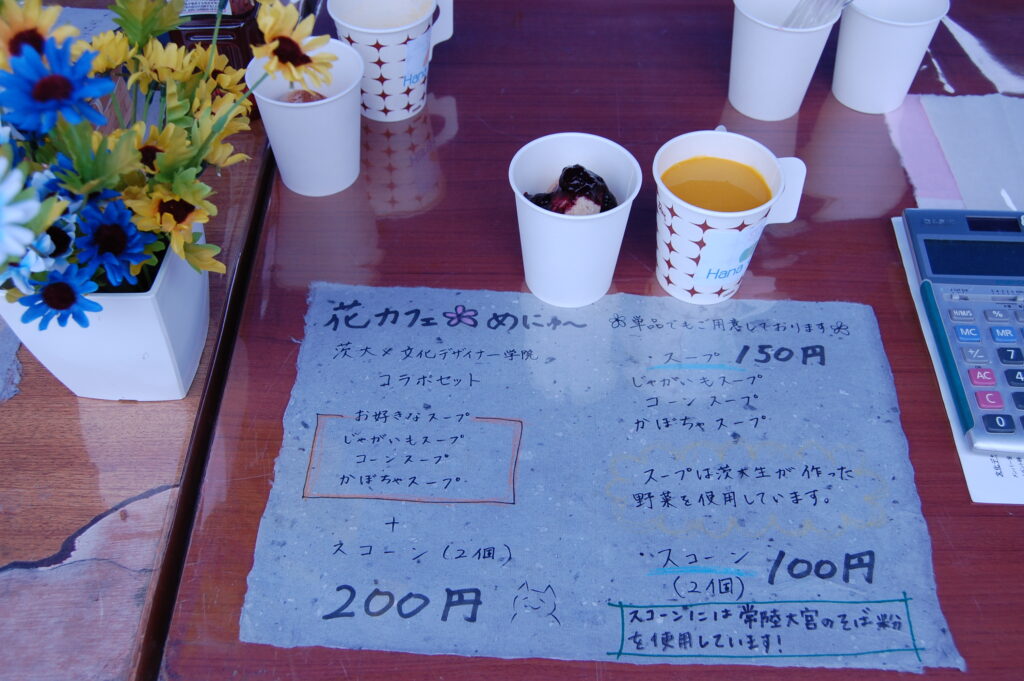 花カフェ めにゅ〜
茨大×文化デザイナー学院
コラボセット
お好きなスープ
じゃがいもスープ
コーンスープ
かぼちゃスープ
+
スコーン(2個)
200円
単品でもご用意しております
・スープ 150円
じゃがいもスープ
コーンスープ
かぼちゃスープ
スープは茨大生が作った
野菜を使用しています。
・スコーン 100円
(2個)
スコーンには常陸大宮のそば粉
を使用しています!
Hana
Hana
%
MC
MR
+/-
7
AC
4
C
0